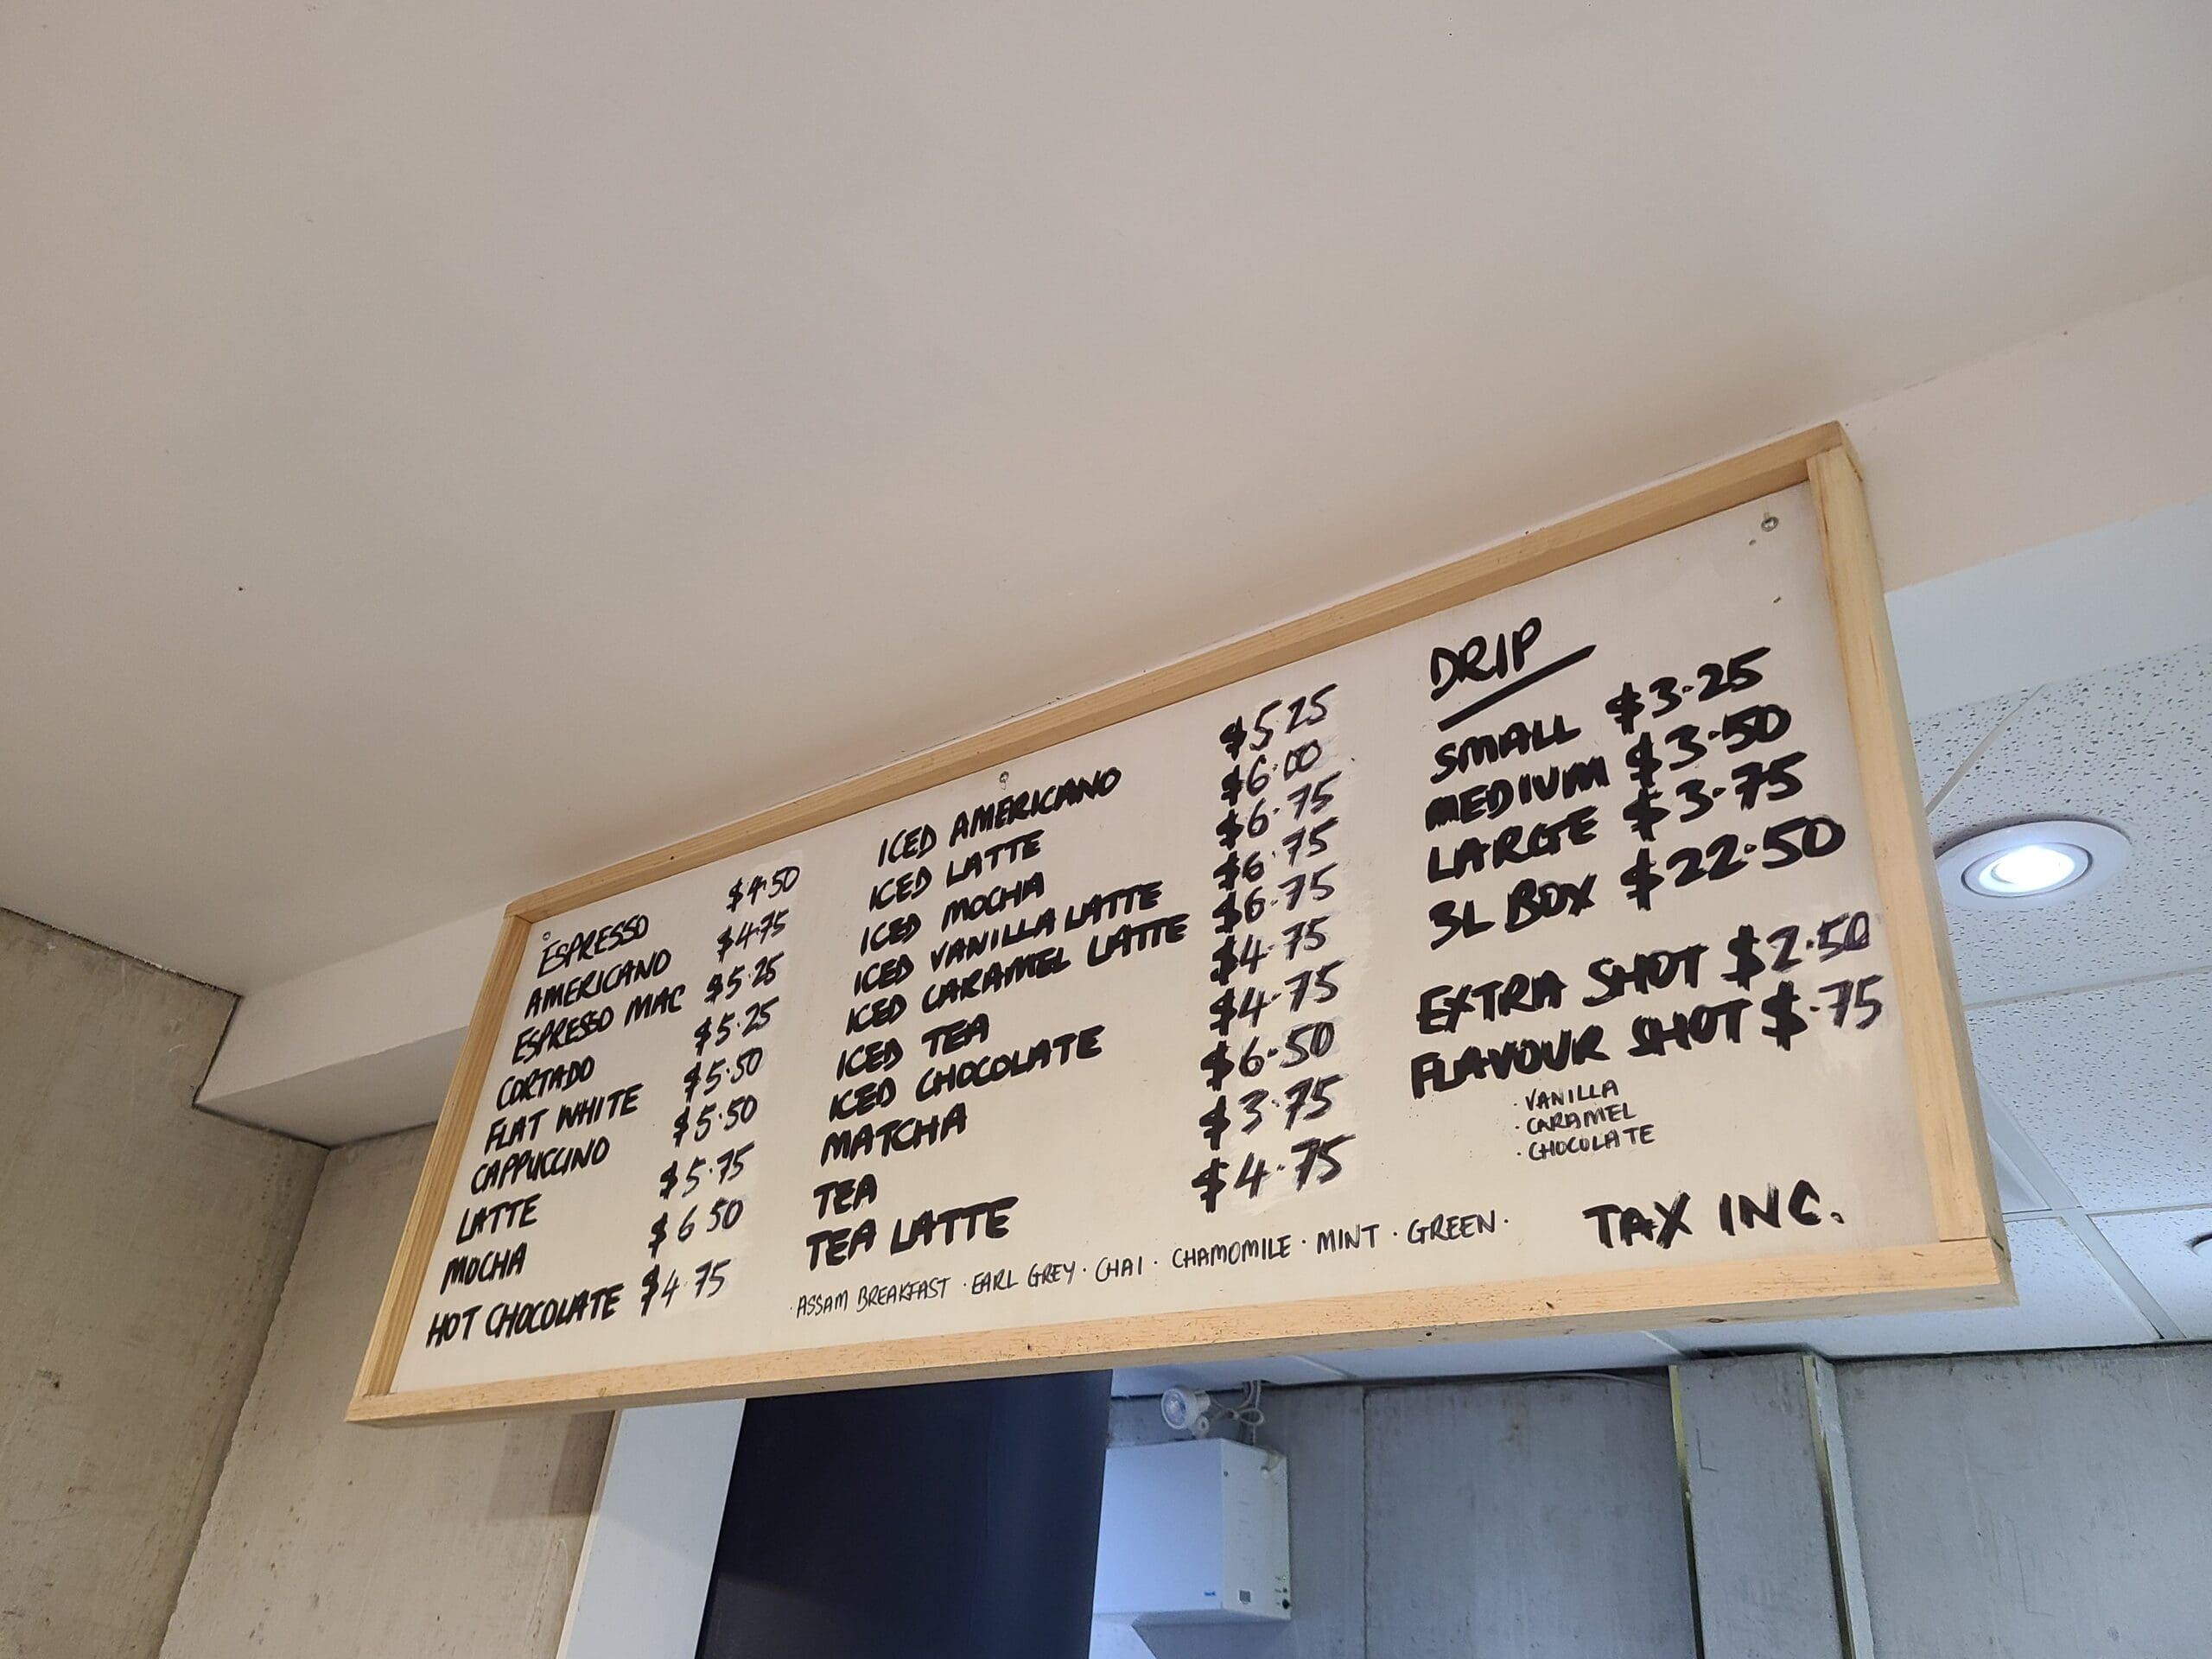 ESPRESSO $4.50
AMERICANO $4.75
ESPRESSO MAC $5.25
CORTADO $5.25
FLAT WHITE $5.50
CAPPUCCINO $5.50
LATTE $5.75
MOCHA $6.50
HOT CHOCOLATE $4.75
ICED AMERICANO $5.25
ICED LATTE $6.00
ICED MOCHA $6.75
ICED VANILLA LATTE $6.75
ICED CARAMEL LATTE $6.75
ICED TEA $4.75
ICED CHOCOLATE $4.75
MATCHA $6.50
TEA $3.75
TEA LATTE $4.75
· ASSAM BREAKFAST · EARL GREY · CHAI · CHAMOMILE · MINT · GREEN ·
DRIP
SMALL $3.25
MEDIUM $3.50
LARGE $3.75
3L BOX $22.50
EXTRA SHOT $2.50
FLAVOUR SHOT $.75
· VANILLA
· CARAMEL
· CHOCOLATE
TAX INC.